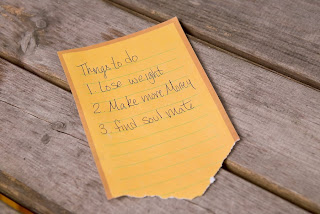 Things to do
1. Lose weight
2. Make more Money
3. find soul mate